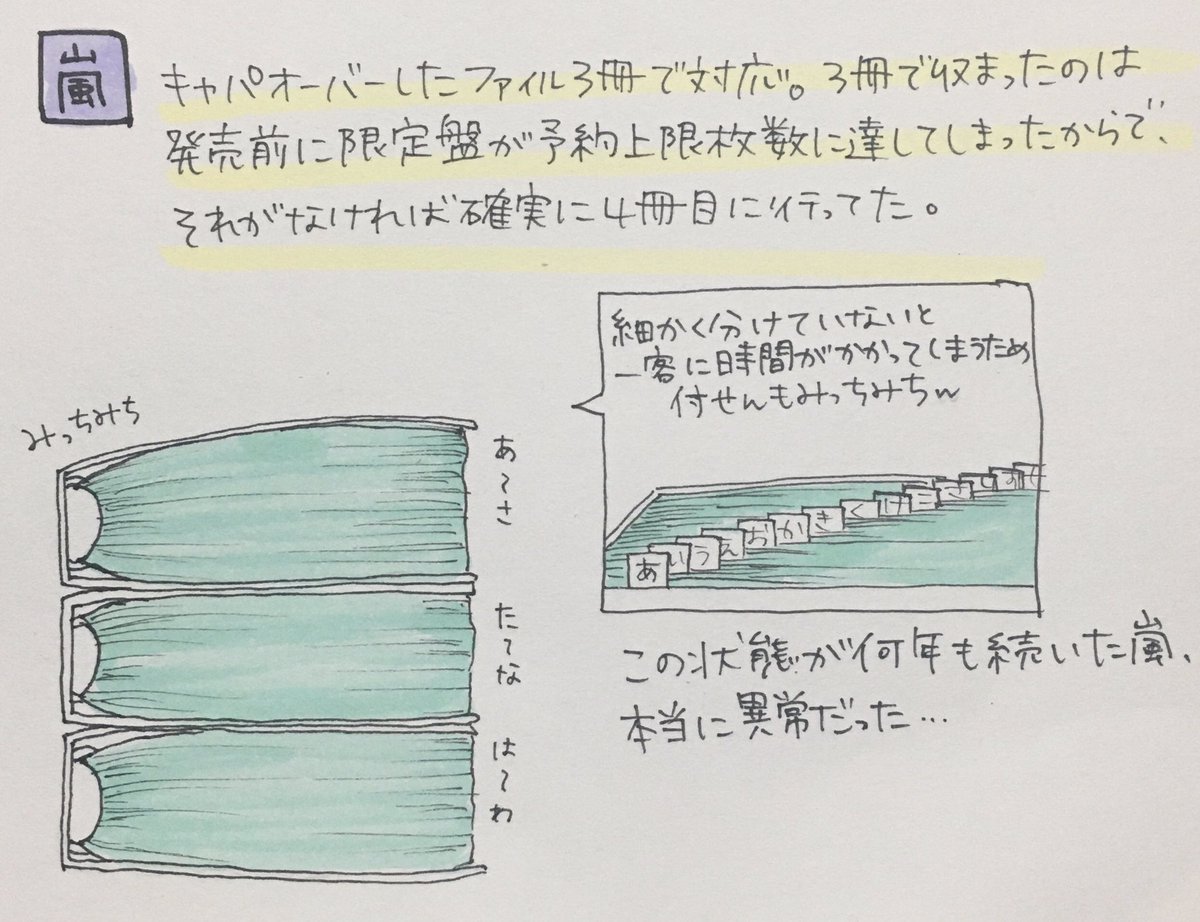 嵐
キャパオーバーしたファイル3冊で対応。3冊で収まったのは
発売前に限定盤が予約上限枚数に達してしまったからで、
それがなければ確実に4冊目に行ってた。
細かく分けていないと
一客に時間がかかってしまうため
付せんもみっちみちw
あいうえおかきくけこさしすせ
みっちみち
あ〜さ
た〜な
は〜わ
この状態が何年も続いた嵐、
本当に異常だった…